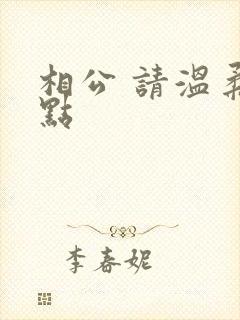 相公 請溫柔
點
李春妮